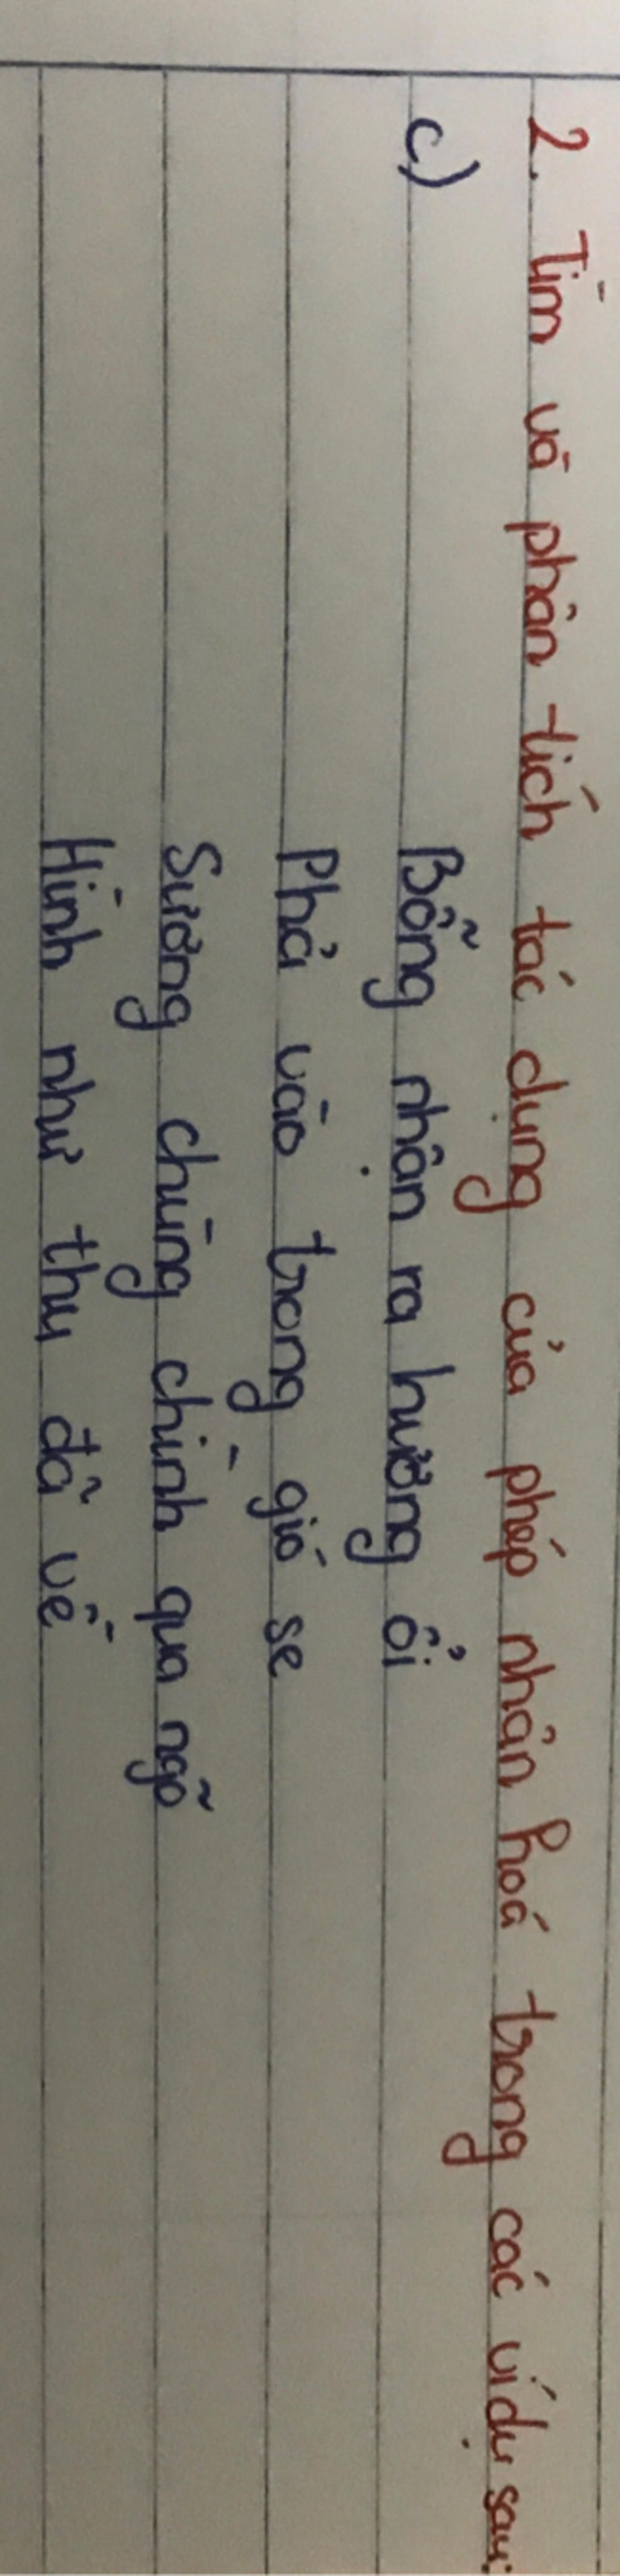 2. Tìm và phân tích tác dụng của phép nhân hoá trong các ví dụ sau:
c) Bỗng nhận ra hương ổi
Phả vào trong gió se
Sương chùng chình qua ngõ
Hình như thu đã về